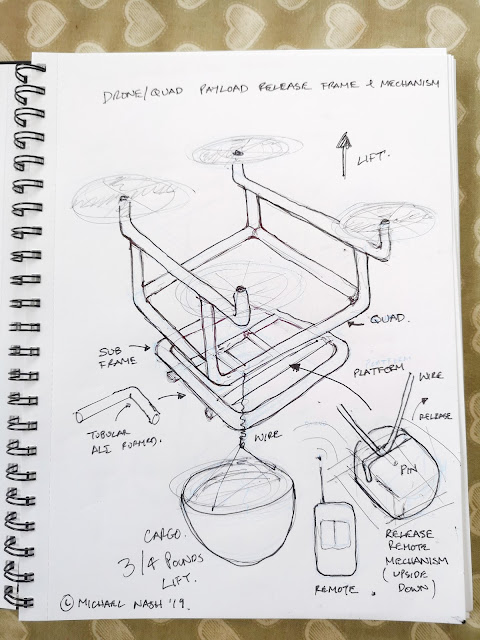 DRONE/QUAD PAYLOAD RELEASE FRAME & MECHANISM
LIFT.
QUAD.
SUB
FRAME
PLATFORM
WIRE
RELEASE
TUBULAR
ALI FORMED.
WIRE
PIN
CARGO.
3/4 POUNDS
LIFT.
REMOTE.
RELEASE
REMOTE
MECHANISM
(UPSIDE
DOWN)
© MICHAEL NASH '19.